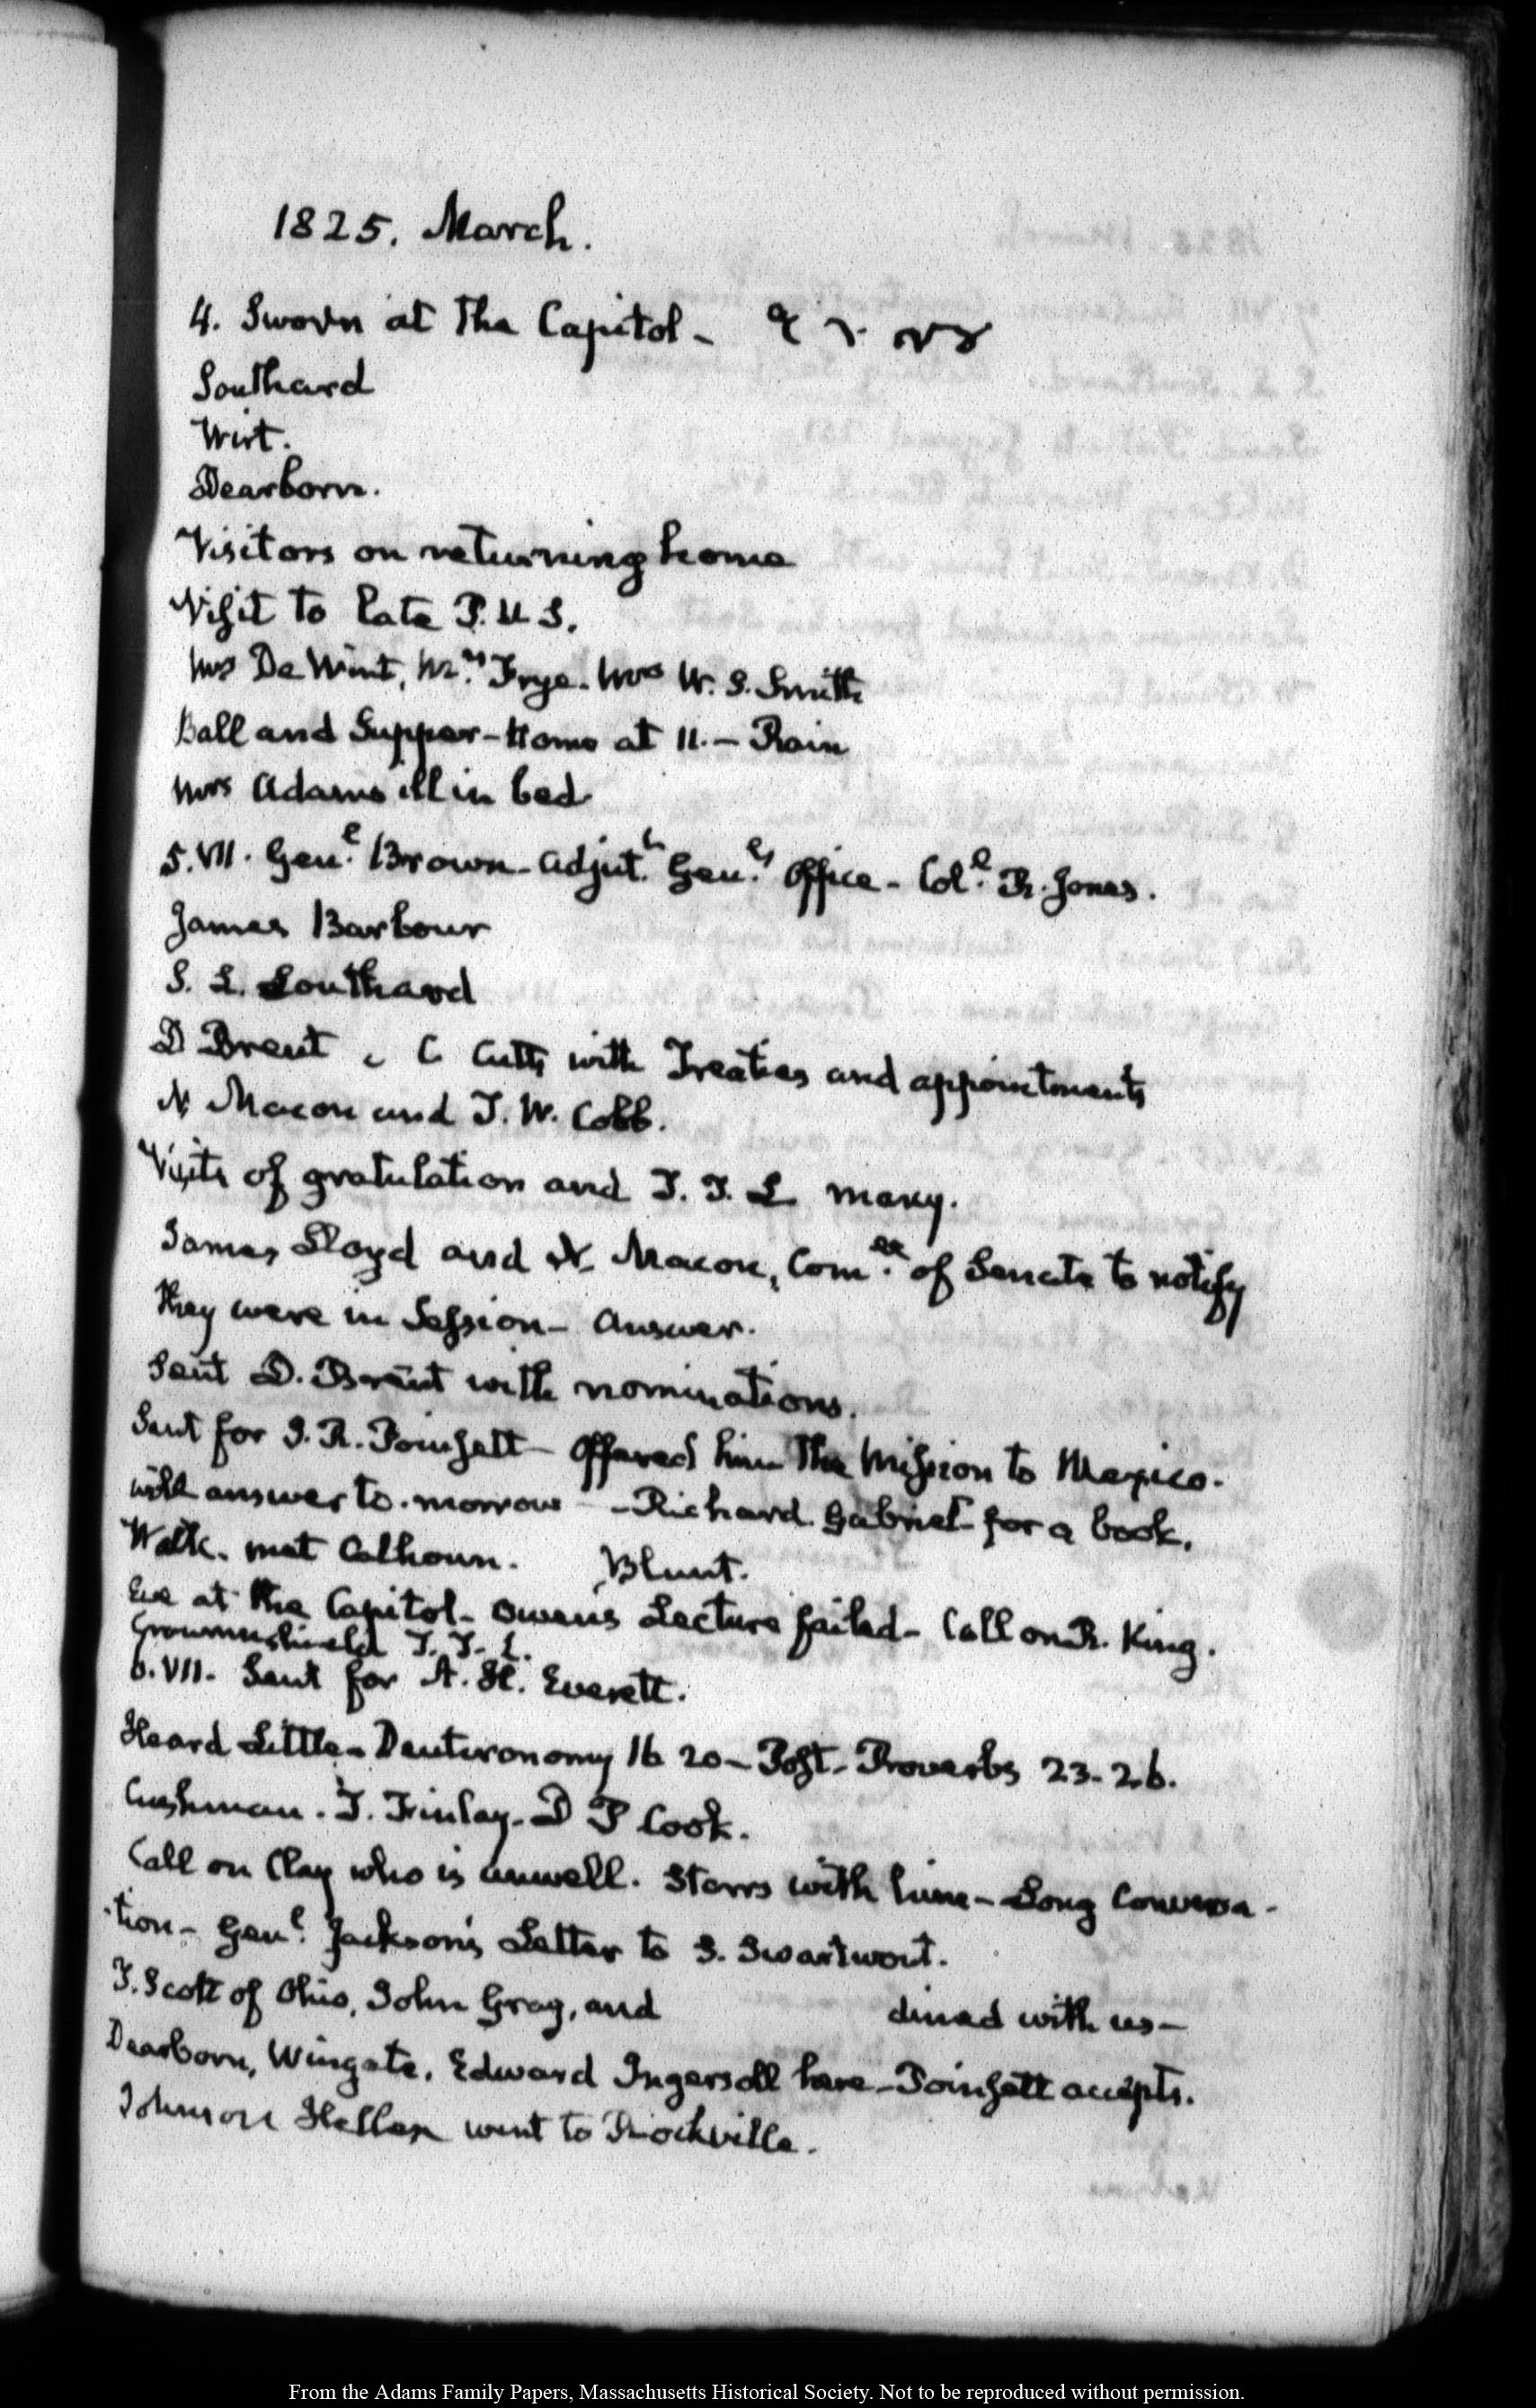 1825. March.
4. Sworn at the Capitol-
Southard
Wirt.
Dearborn.
Visitors on returning home
Visit to late P. U S.
Mrs De Wint, Mrs. Frye. Mrs W. S. Smith
Ball and Supper-Home at 11.- Rain
Mrs Adams ill in bed
5. VII. Genl. Brown- Adjutt. Genls. Office- Coll. R. Jones.
James Barbour
S. L. Southard
D Brent C Cutts with Treaties and appointments
N Macon and T. W. Cobb.
Visits of gratulation and T. T. L many.
James Lloyd and N. Macon, Comee. of Senate to notify
they were in Session- Answer.
Sent D. Brent with nominations.
Sent for J. R. Poinsett- Offered him the Mission to Mexico.
will answer to-morrow - -Richard. Gabriel- for a book.
Walk. met Calhoun. Blunt.
Eve at the Capitol- Owen's Lecture failed- Call on R. King.
Crowninshield T. T. L.
6. VII. Sent for A. H. Everett.
Heard Little- Deuteronomy 16 20- Post- Proverbs 23. 26.
Cushman. J. Finlay- D P Cook.
Call on Clay who is unwell. Storrs with him- Long Conversa-
-tion- Genl. Jackson's Letter to S. Swartwout.
T. Scott of Ohio, John Gray, and dined with us-
Dearborn, Wingate, Edward Ingersoll here- Poinsett accepts.
Johnson Hellen went to Rockville.
From the Adams Family Papers, Massachusetts Historical Society. Not to be reproduced without permission.